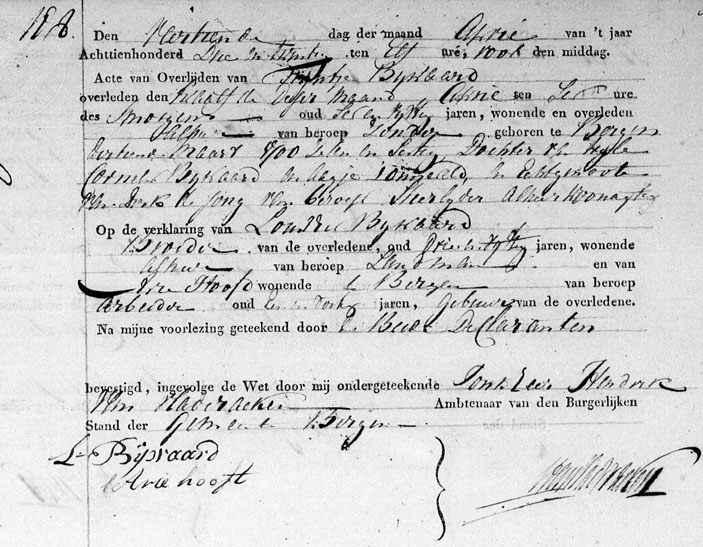 Den Veertiende dag der maand April van 't jaar
Achttienhonderd Drie en Twintig ten Elf ure, voor den middag.
Acte van Overlijden van Trijntje Bijvaard
overleden den twaalfde dezer maand April ten ure
des smorgens oud jaren, wonende en overleden
alhier van beroep zonder geboren te Bergen
Maart 1700 en Sestig Dochter van wijle
Cornelis Bijvaard en en Echtgenoote
van Dirk de Jong van beroep alhier woonagtig
Op de verklaring van Lourens Bijvaard
Broeder van de overledene, oud Drie en Vijftig jaren, wonende
alhier van beroep Landman en van
Arie Hooft wonende te Bergen van beroep
arbeider oud jaren, gebuur van de overledene.
Na mijne voorlezing geteekend door de Beide Declaranten
bevestigd, ingevolge de Wet door mij ondergeteekende Jonkheer Hendrik
Van Ambtenaar van den Burgerlijken
Stand der Gemeente Bergen
L Bijvaard
Arie hooft